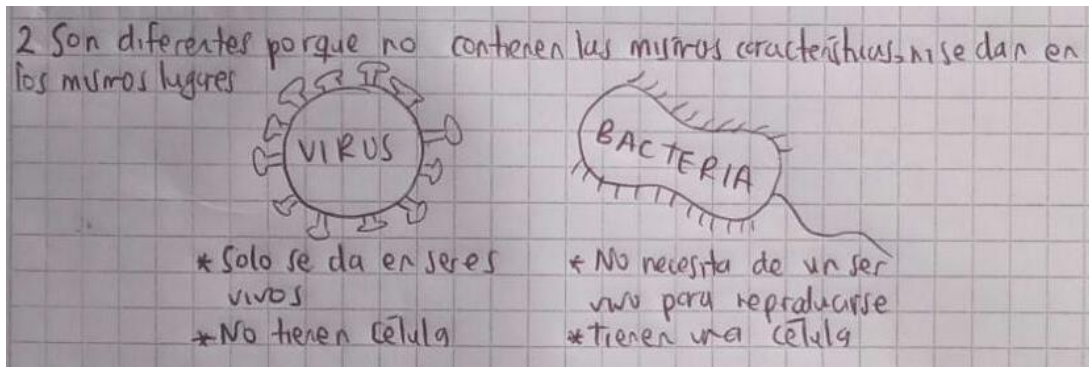 2 Son diferentes porque no contienen las mismos características, ni se dan en
los mismos lugares
VIRUS
BACTERIA
* Solo se da en seres
vivos
* No tienen célula
* No necesita de un ser
vivo para reproducirse
* tienen una célula